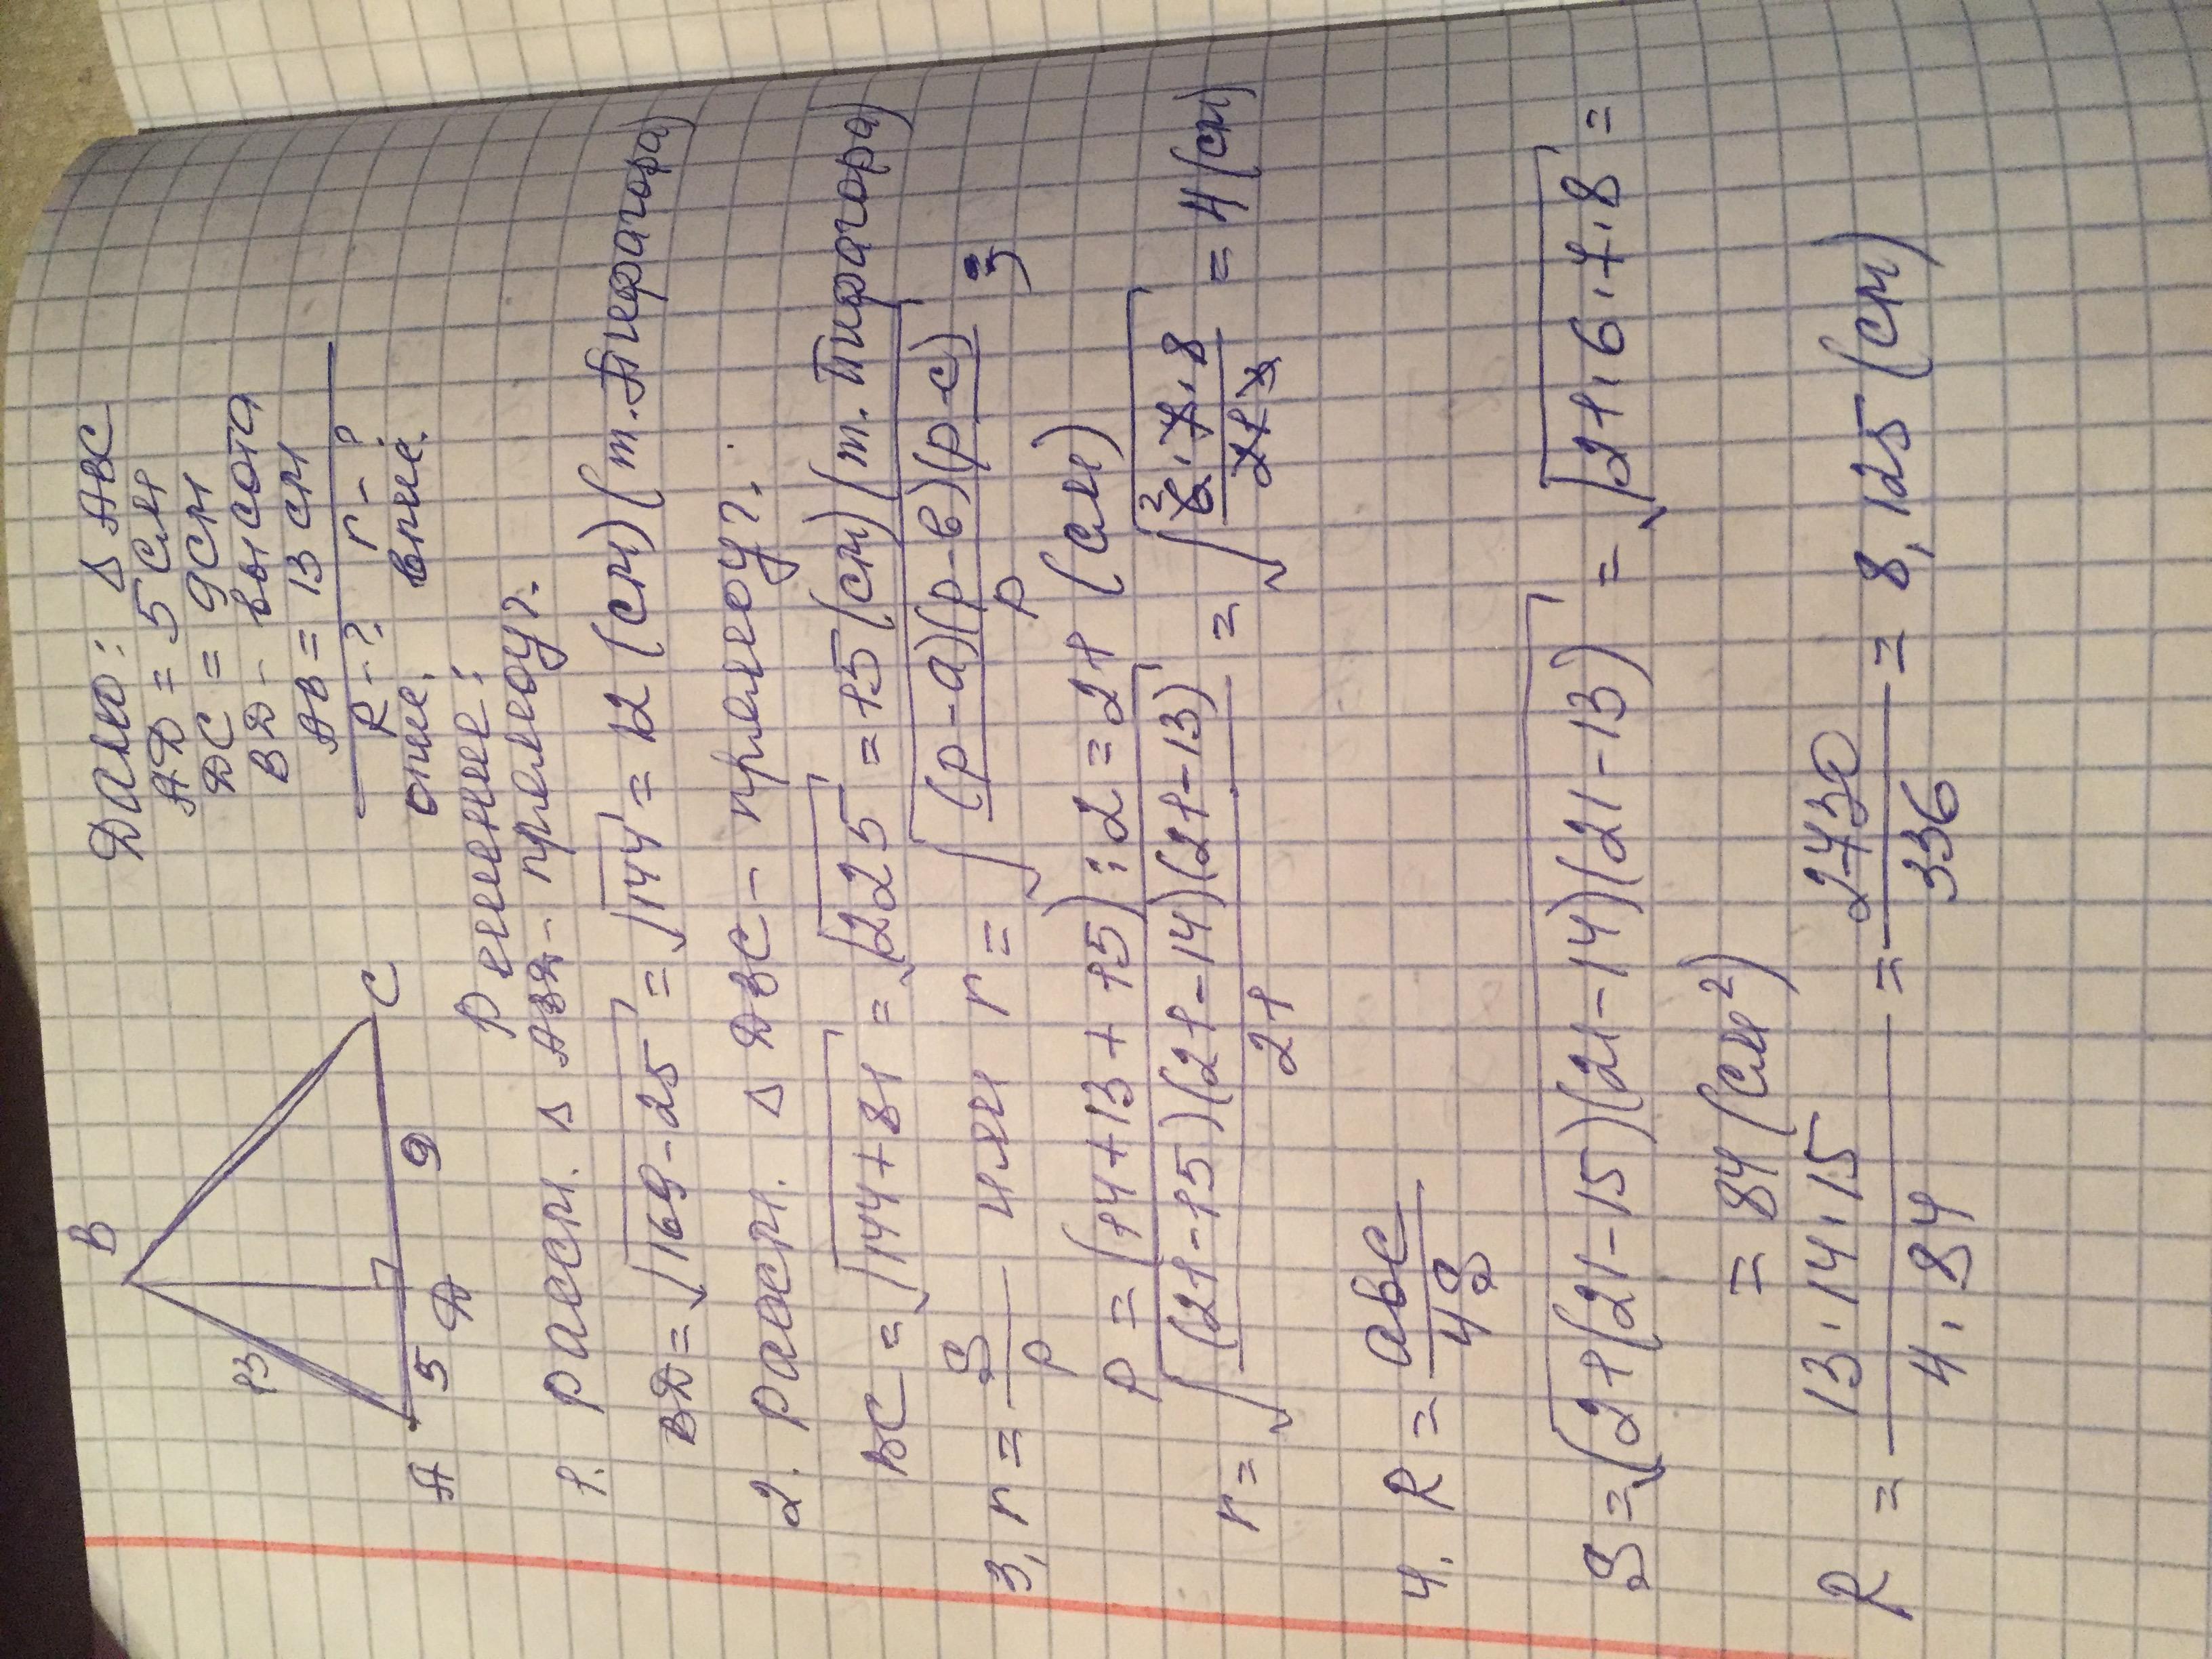 Дано: Δ АВС
АД = 5 см
ДС = 9 см
ВД - высота
АВ = 13 см
R - ? r - ?
опис. впис.
В
13
А 5 Д 9 С
Решение:
1. Рассм. Δ АВД - прямоуг.
ВД = √169-25 = √144 = 12 (см) (т. Пифагора)
2. Рассм. Δ ДВС - прямоуг.
ВС = √144+81 = √225 = 15 (см) (т. Пифагора)
3. r = S/p или r = √(p-a)(p-b)(p-c)/p ;
p = (14+13+15):2 = 21 (см)
r = √(21-15)(21-14)(21-13)/21 = √6·7·8/21 = 4 (см)
4. R = abc/4S
S = √21(21-15)(21-14)(21-13) = √21·6·7·8 =
= 84 (см²)
R = 13·14·15/4·84 = 2730/336 = 8,125 (см)